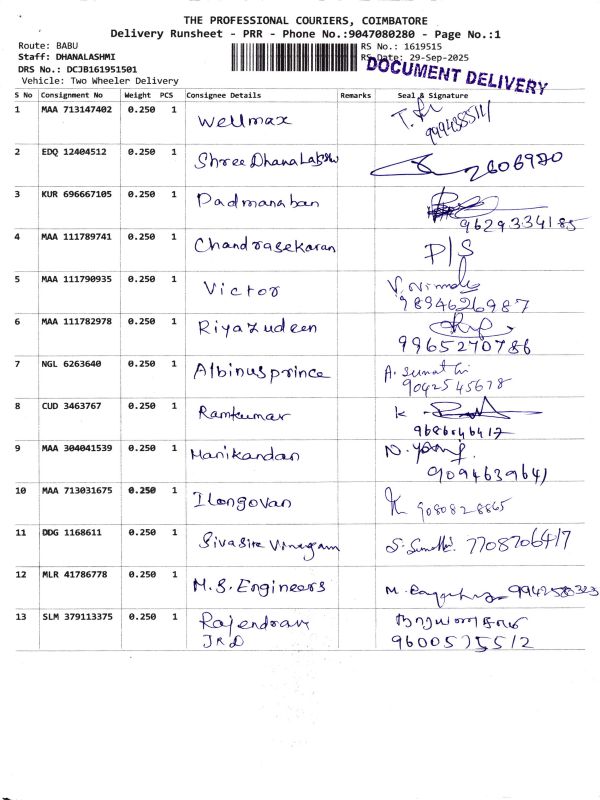 THE PROFESSIONAL COURIERS, COIMBATORE
Delivery Runsheet - PRR - Phone No.:9047080280 - Page No.:1
Route: BABU
RS No.: 1619515
Staff: DHANALASHMI
RS Date: 29-Sep-2025
DRS No.: DCJB161951501
DOCUMENT DELIVERY
Vehicle: Two Wheeler Delivery
S No Consignment No Weight PCS Consignee Details Remarks Seal & Signature
1 MAA 713147402 0.250 1 Wellmax
2 EDQ 12404512 0.250 1 Shree 2606980
3 KUR 696667105 0.250 1 Padmanaban
9629334185
4 MAA 111789741 0.250 1 Chandrasekaran P/S
5 MAA 111790935 0.250 1 Victor
9894626987
6 MAA 111782978 0.250 1 Riyazudeen
9965270786
7 NGL 6263640 0.250 1 Albinusprince A. Sumathi
9042545678
8 CUD 3463767 0.250 1 Ramkumar K
9686546417
9 MAA 304041539 0.250 1 Manikandan
9094639641
10 MAA 713031675 0.250 1 Ilongovan 9080828865
11 DDG 1168611 0.250 1 Sivasire Vinayagam S. Sumathi. 7708706417
12 MLR 41786778 0.250 1 M.S. Engineers M. 9942580323
13 SLM 379113375 0.250 1 Rajendran
JRD 9600575512